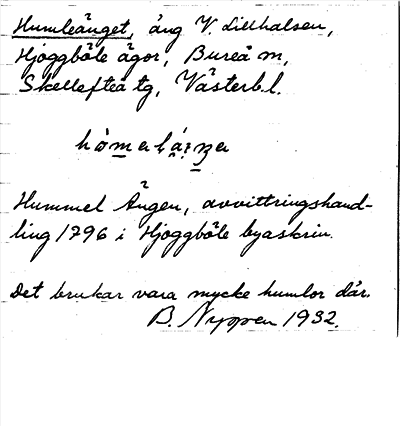 Humleänget, äng V. Lillhalsen,
Hjoggböle ägor, Bureå sn,
Skellefteå tg, Västerb.l.
Hummel Ängen, avvittringshand-
ling 1796 i Hjoggböle byaskrin.
Det brukar vara mycke humlor där.
B. Nyppen 1932.